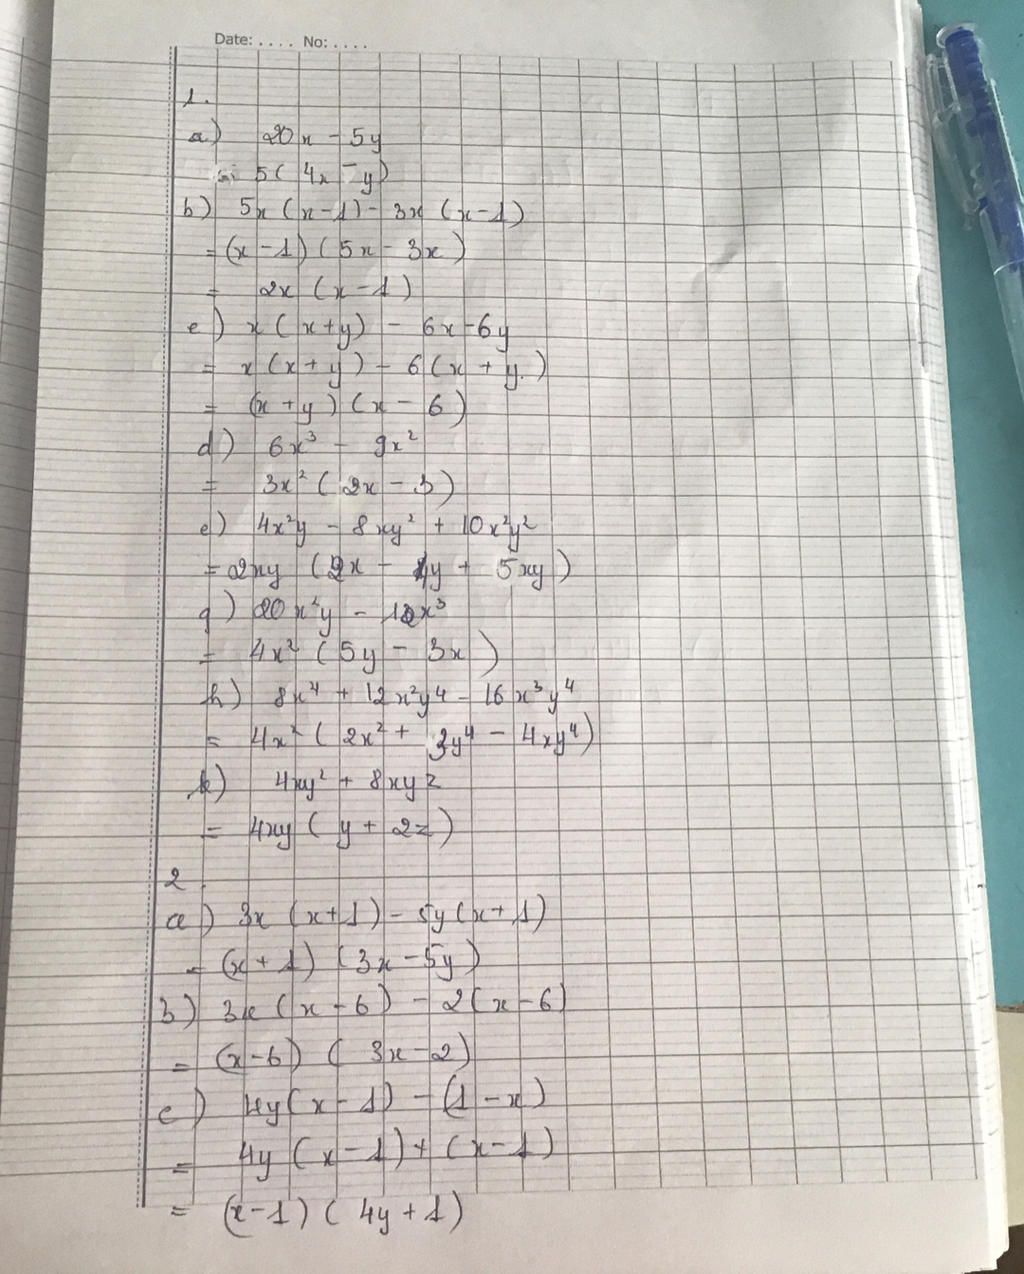 Date: .... No: ....
1.
a) 20x - 5y
= 5( 4x - y)
b) 5x (x-1) - 3x (x-1)
= (x-1) (5x - 3x)
= 2x (x-1)
c) x(x+y) - 6x-6y
= x(x+y) - 6(x+y)
= (x+y)(x-6)
d) 6x³ - 9x²
= 3x² (2x - 3)
e) 4x²y - 8xy² + 10x²y²
= 2xy (2x - 4y + 5xy)
g) 20x²y - 12x³
= 4x² (5y - 3x)
h) 8x⁴ + 12x²y⁴ - 16x³y⁴
= 4x² (2x² + 3y⁴ - 4xy⁴)
k) 4xy² + 8xyz
= 4xy (y + 2z)
2.
a) 3x (x+1) - 5y(x+1)
= (x+1) (3x-5y)
b) 3x (x-6) - 2(x-6)
= (x-6) (3x-2)
c) 4y(x-1) - (1-x)
= 4y (x-1) + (x-1)
= (x-1) (4y+1)